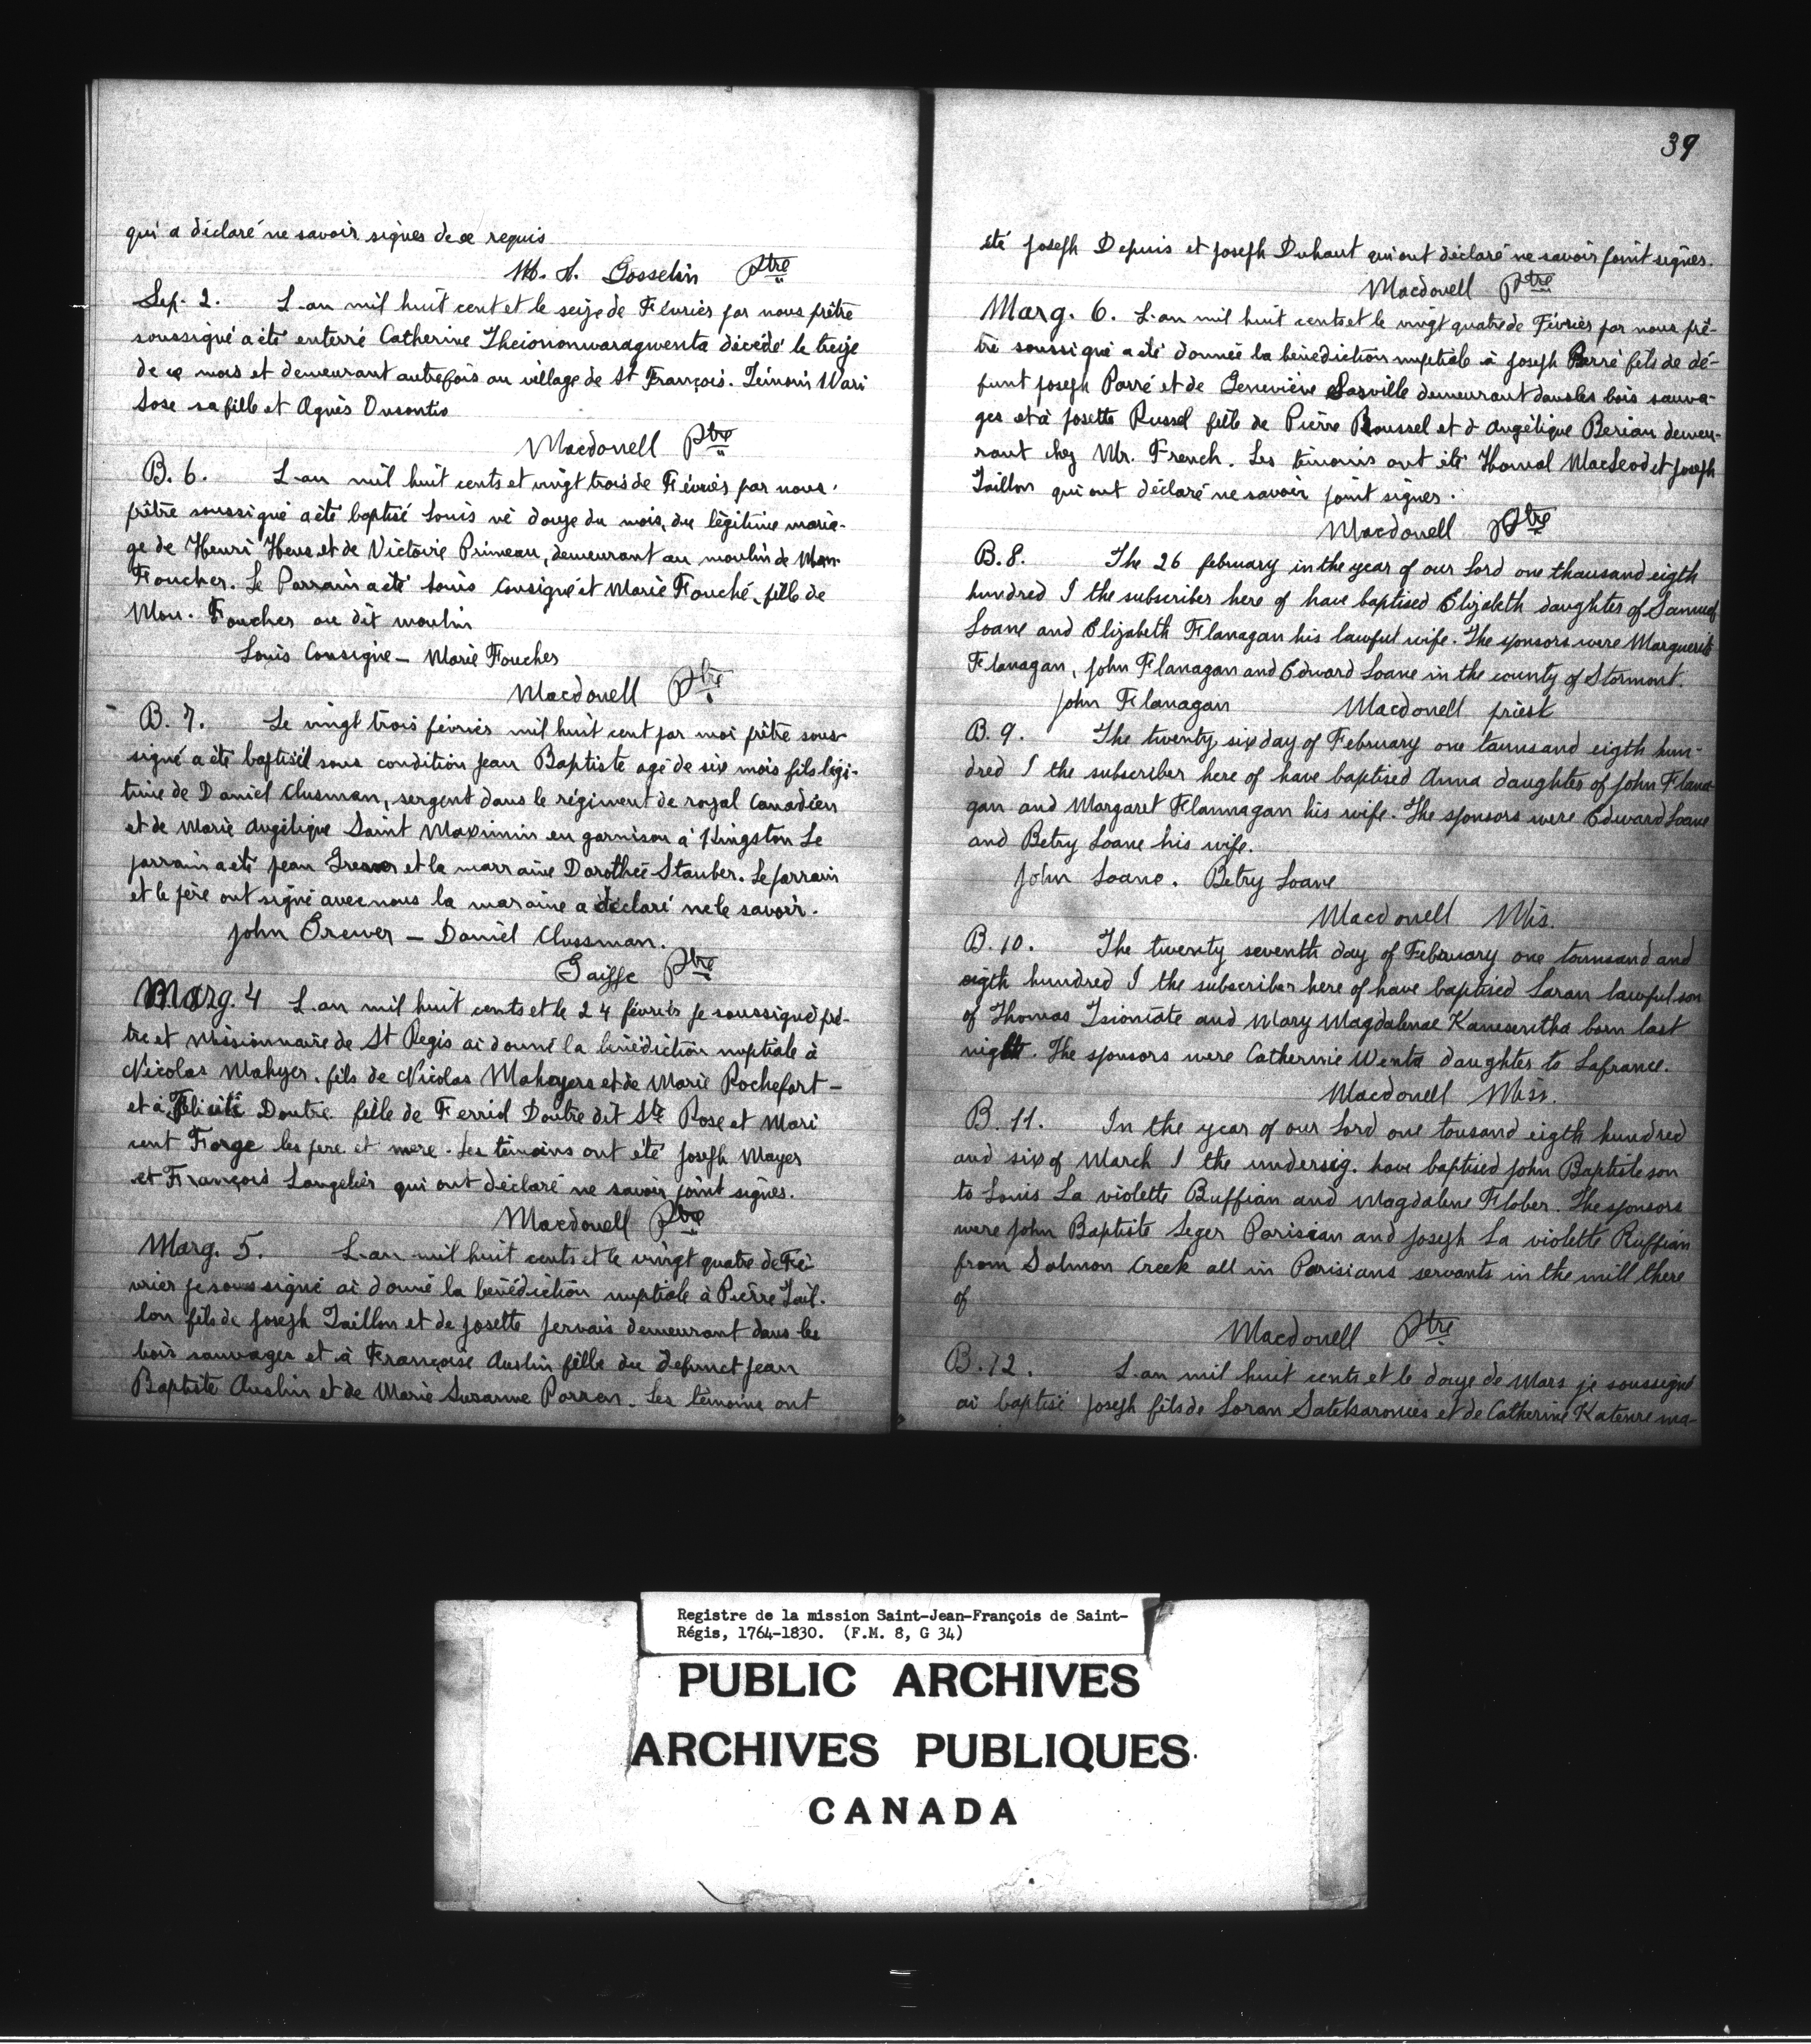 qui a déclaré ne savoir signer de ce requis
M. S. Gosselin Ptre
Sep. 2. L-an mil huit cent et le seize de Février par nous prêtre
soussigné a été enterré Catherine Theiononwaragwenta décédé le treize
de ce mois et demeurant autrefois au village de St François. Témoins Wari
Sose sa fille et Agnès Onsontio
Macdonell Ptre
B. 6. L-an mil huit cents et vingt trois de Février par nous
prêtre soussigné a été baptisé Louis né douze du mois, du légitime maria-
ge de Henri Heus et de Victoire Primeau, demeurant au moulin de Mon.
Foucher. Le Parrain a été Louis Consigné et Marie Fouché, fille de
Mon. Foucher au dit moulin
Louis Consigne – Marie Foucher
Macdonell Ptre
B. 7. Le vingt trois février mil huit cent par moi prêtre sous-
signé a été baptisé sous condition Jean Baptiste agé de six mois fils légi-
time de Daniel Clusman, sergent dans le régiment de royal Canadien
et de Marie Angélique Saint Maximin en garnison à Kingston Le
parrain a été Jean et la marraine Dorothée Stauber. Le parrain
et le père ont signé avec nous la maraine a déclaré ne le savoir.
John Brewer – Daniel Clussman.
Gaiffe Ptre
Marg. 4 L-an mil huit cents et le 24 février je soussigné prê-
tre et Missionnaire de St Regis ai donné la bénédiction nuptiale à
Nicolas Mahyer, fils de Nicolas Mahayers et de Marie Rochefort –
et à Félicité Doutre fille de Ferriol Doutre dit Ste Rose et Mari
cent Forge les pere et mere. Les témoins ont été Joseph Mayer
et François Langelier qui ont déclaré ne savoir point signer.
Macdonell Ptre
Marg. 5. L-an mil huit cents et le vingt quatre de Fé-
vrier je soussigné ai donné la bénédiction nuptiale à Pierre Tail-
lon fils de Joseph Taillon et de Josette Jervais demeurant dans les
bois sauvages et à Françoise Auslin fille du defunct Jean
Baptiste Auslin et de Marie Suzanne Parren. Les témoins ont
39
été Joseph Depuis et Joseph Duhaut qui ont déclaré ne savoir point signer.
Macdonell Ptre
Marg. 6. L-an mil huit cents et le vingt quatre de Février par nous prê-
tre soussigné a été donnée la bénédiction nuptiale à Joseph Parré fils de dé-
funt Joseph Parré et de Geneviève Sasville demeurant dans les bois sauva-
ges et à Josette Russel fille de Pierre Roussel et d Angélique Berian demeu-
rant chez Mr. French. Les témoins ont été Thomal MacLeod et Joseph
Taillon qui ont déclaré ne savoir point signer.
Macdonell Ptre
B. 8. The 26 february in the year of our Lord one thausand eigth
hundred I the subscriber here of have baptised Elizabeth daughter of Samuel
Loane and Elizabeth Flanagan his lawful wife. The sponsors were Marguerite
Flanagan, John Flanagan and Edward Loane in the county of Stormont.
John Flanagan Macdonell priest
B. 9. The twenty six day of February one taunsand eigth hun-
dred I the subscriber here of have baptised Anna daughter of John Flana-
gan and Margaret Flannagan his wife. The sponsors were Edward Loane
and Betry Loane his wife.
John Loane. Betry Loane
Macdonell Mis.
B. 10. The twenty seventh day of February one tounsand and
eigth hundred I the subscriber here of have baptised Saran lawful son
of Thomas Tsioniate and Mary Magdalenae Kanesentha born last
night. The sponsors were Catherine Wenta daughter to Lafrance.
Macdonell Miss.
B. 11. In the year of our Lord one tousand eigth hundred
and six of March I the undersig. have baptised John Baptiste son
to Louis La violette Buffian and Magdalene Flober. The sponsors
were John Baptiste Leger Parisian and Joseph La violette Ruffian
from Salmon Creek all in Parisians servants in the mill there
of
Macdonell Ptre
B. 12. L-an mil huit cents et le douze de Mars je soussigné
ai baptisé Joseph fils de Soran Satekaronies et de Catherine Katenre ma-
Registre de la mission Saint-Jean-François de Saint-
Régis, 1764-1830. (F.M. 8, G 34)
PUBLIC ARCHIVES
ARCHIVES PUBLIQUES
CANADA